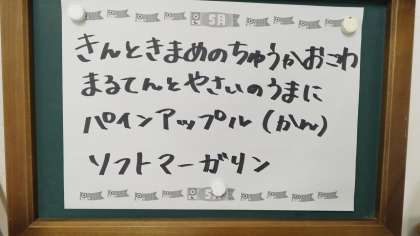 5月
きんときまめのちゅうかおこわ
まるてんとやさいのうまに
パインアップル(かん)
ソフトマーガリン